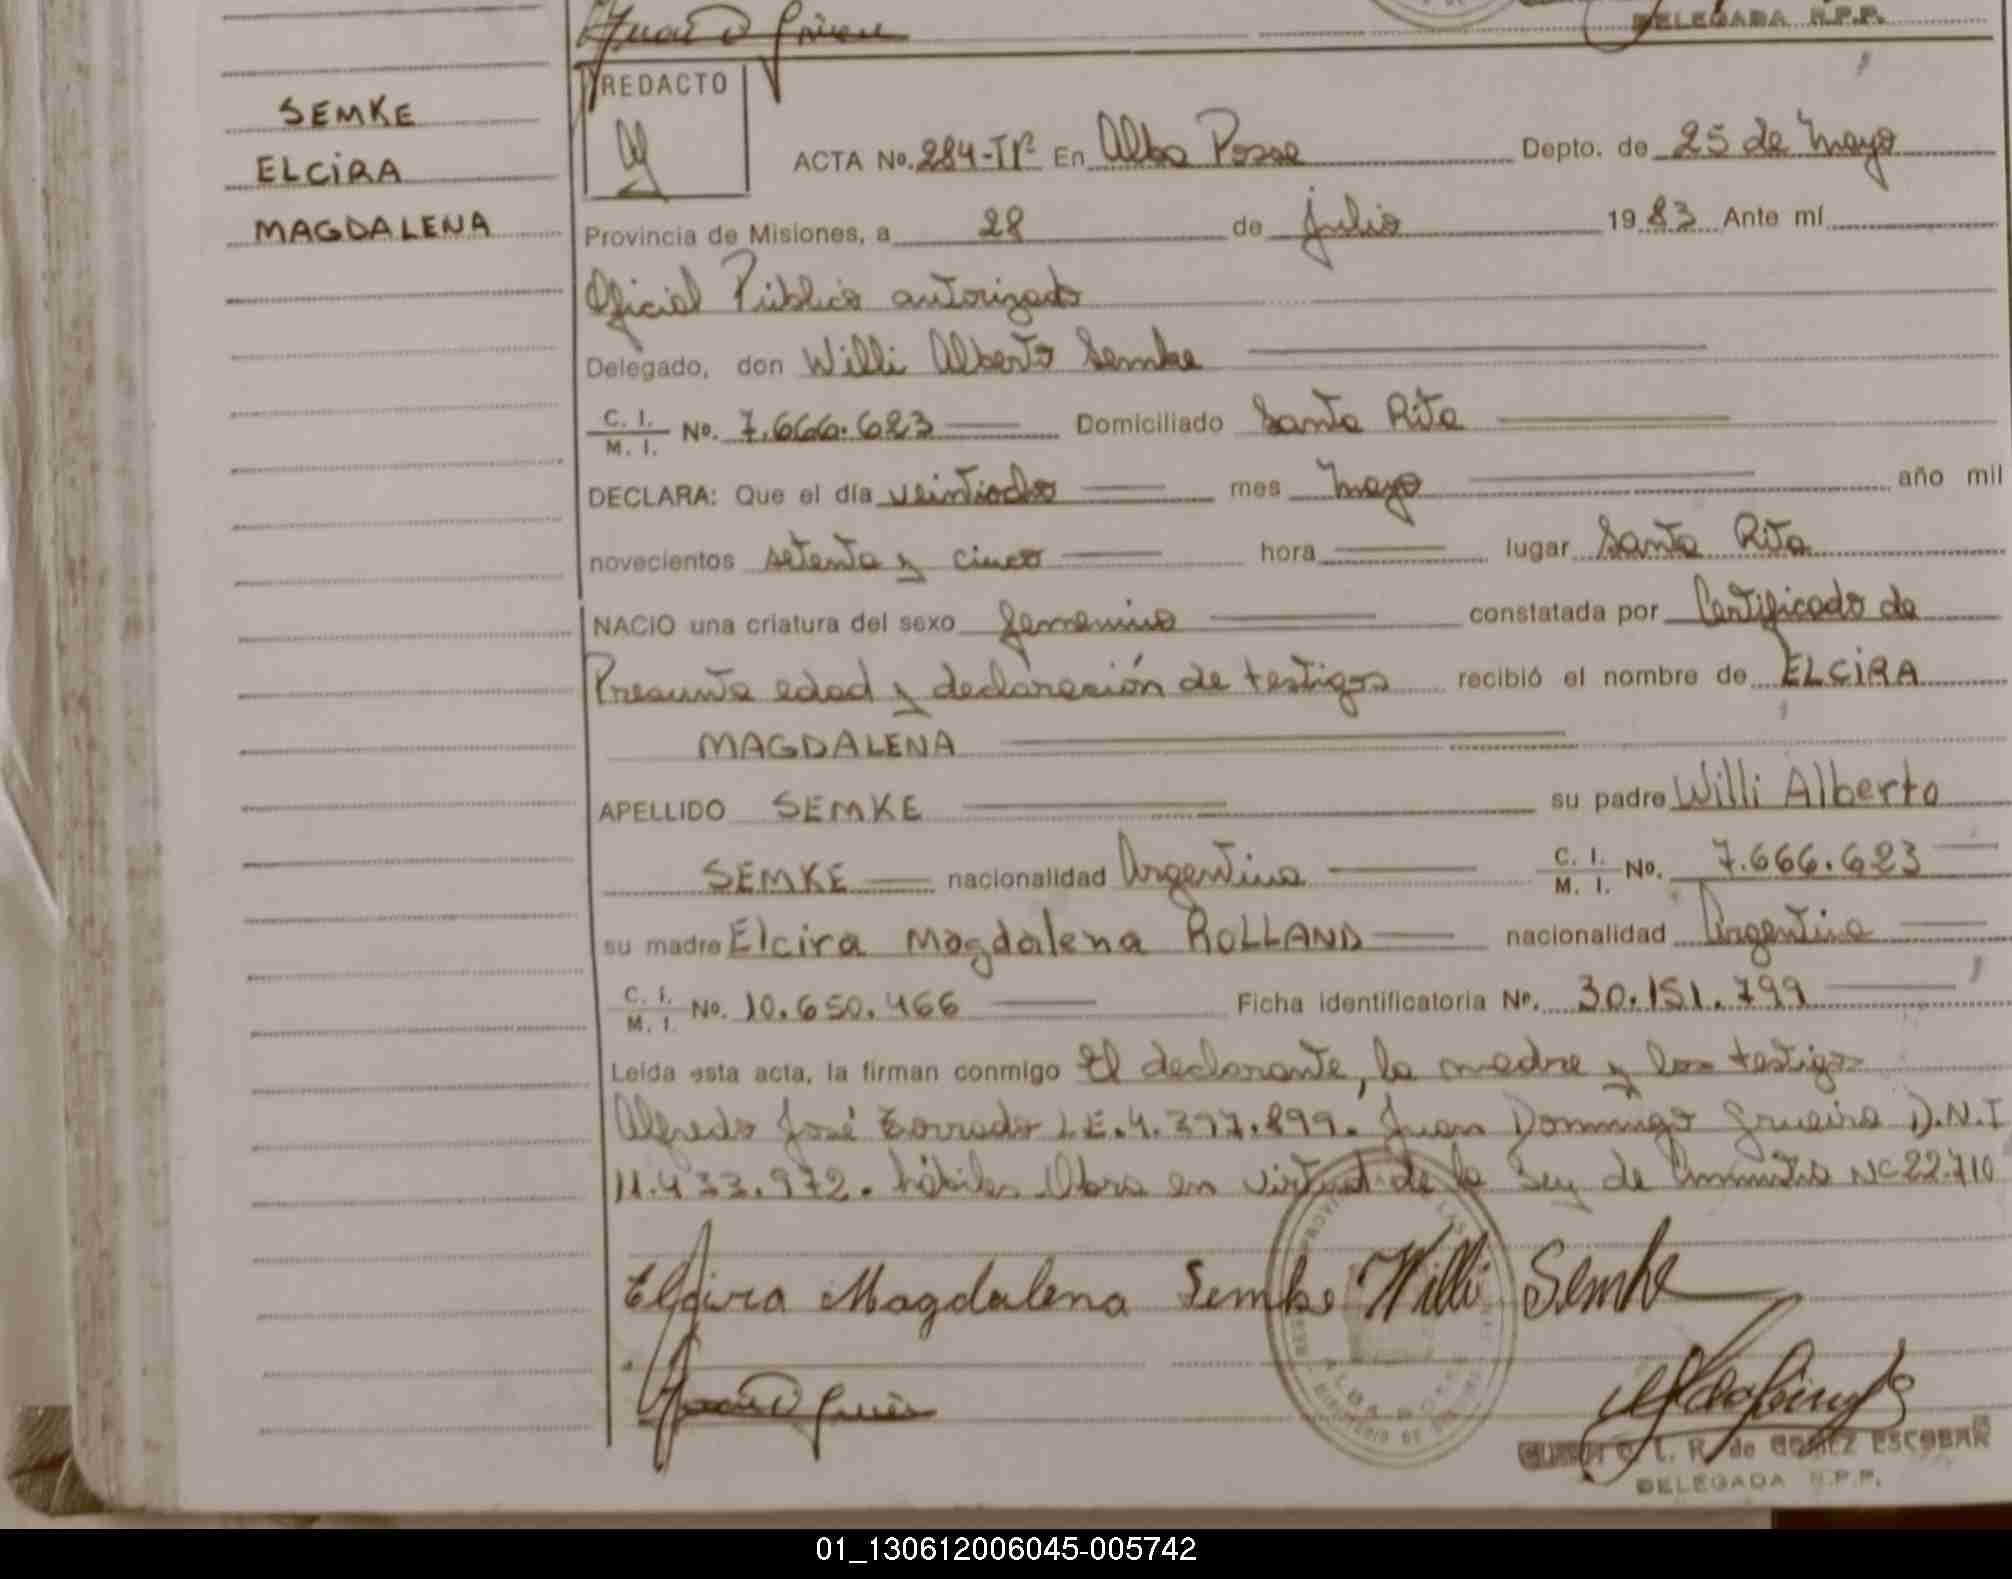 DELEGADA R.P.P.
REDACTO
SEMKE
ELCIRA
MAGDALENA
ACTA No. 284-Tº En Alba Posse Depto. de 25 de Mayo
Provincia de Misiones, a 28 de Julio 1983 Ante mí
Oficial Público autorizado
Delegado, don Willi Alberto Semke
C. I. M. I. No. 7.666.623 Domiciliado Santa Rita
DECLARA: Que el día veintiocho mes Mayo año mil
novecientos setenta y cinco hora lugar Santa Rita
NACIO una criatura del sexo femenino constatada por Certificado de
Presunta edad y declaración de testigos recibió el nombre de ELCIRA
MAGDALENA
APELLIDO SEMKE su padre Willi Alberto
SEMKE nacionalidad Argentina C. I. M. I. No. 7.666.623
su madre Elcira Magdalena ROLLAND nacionalidad Argentina
C. I. M. I. No. 10.650.466 Ficha identificatoria No. 30.151.799
Leída esta acta, la firman conmigo El declarante, la madre y los testigos
Alfredo José L.E. 4.397.899. Juan Domingo Grueiro D.N.I
11.433.972. hábiles. Obra en virtud de la Ley de Nº 22.710
Elcira Magdalena Semke Willi Semke
C. L. R. de GOMEZ ESCOBAR
DELEGADA R.P.P.
01_130612006045-005742